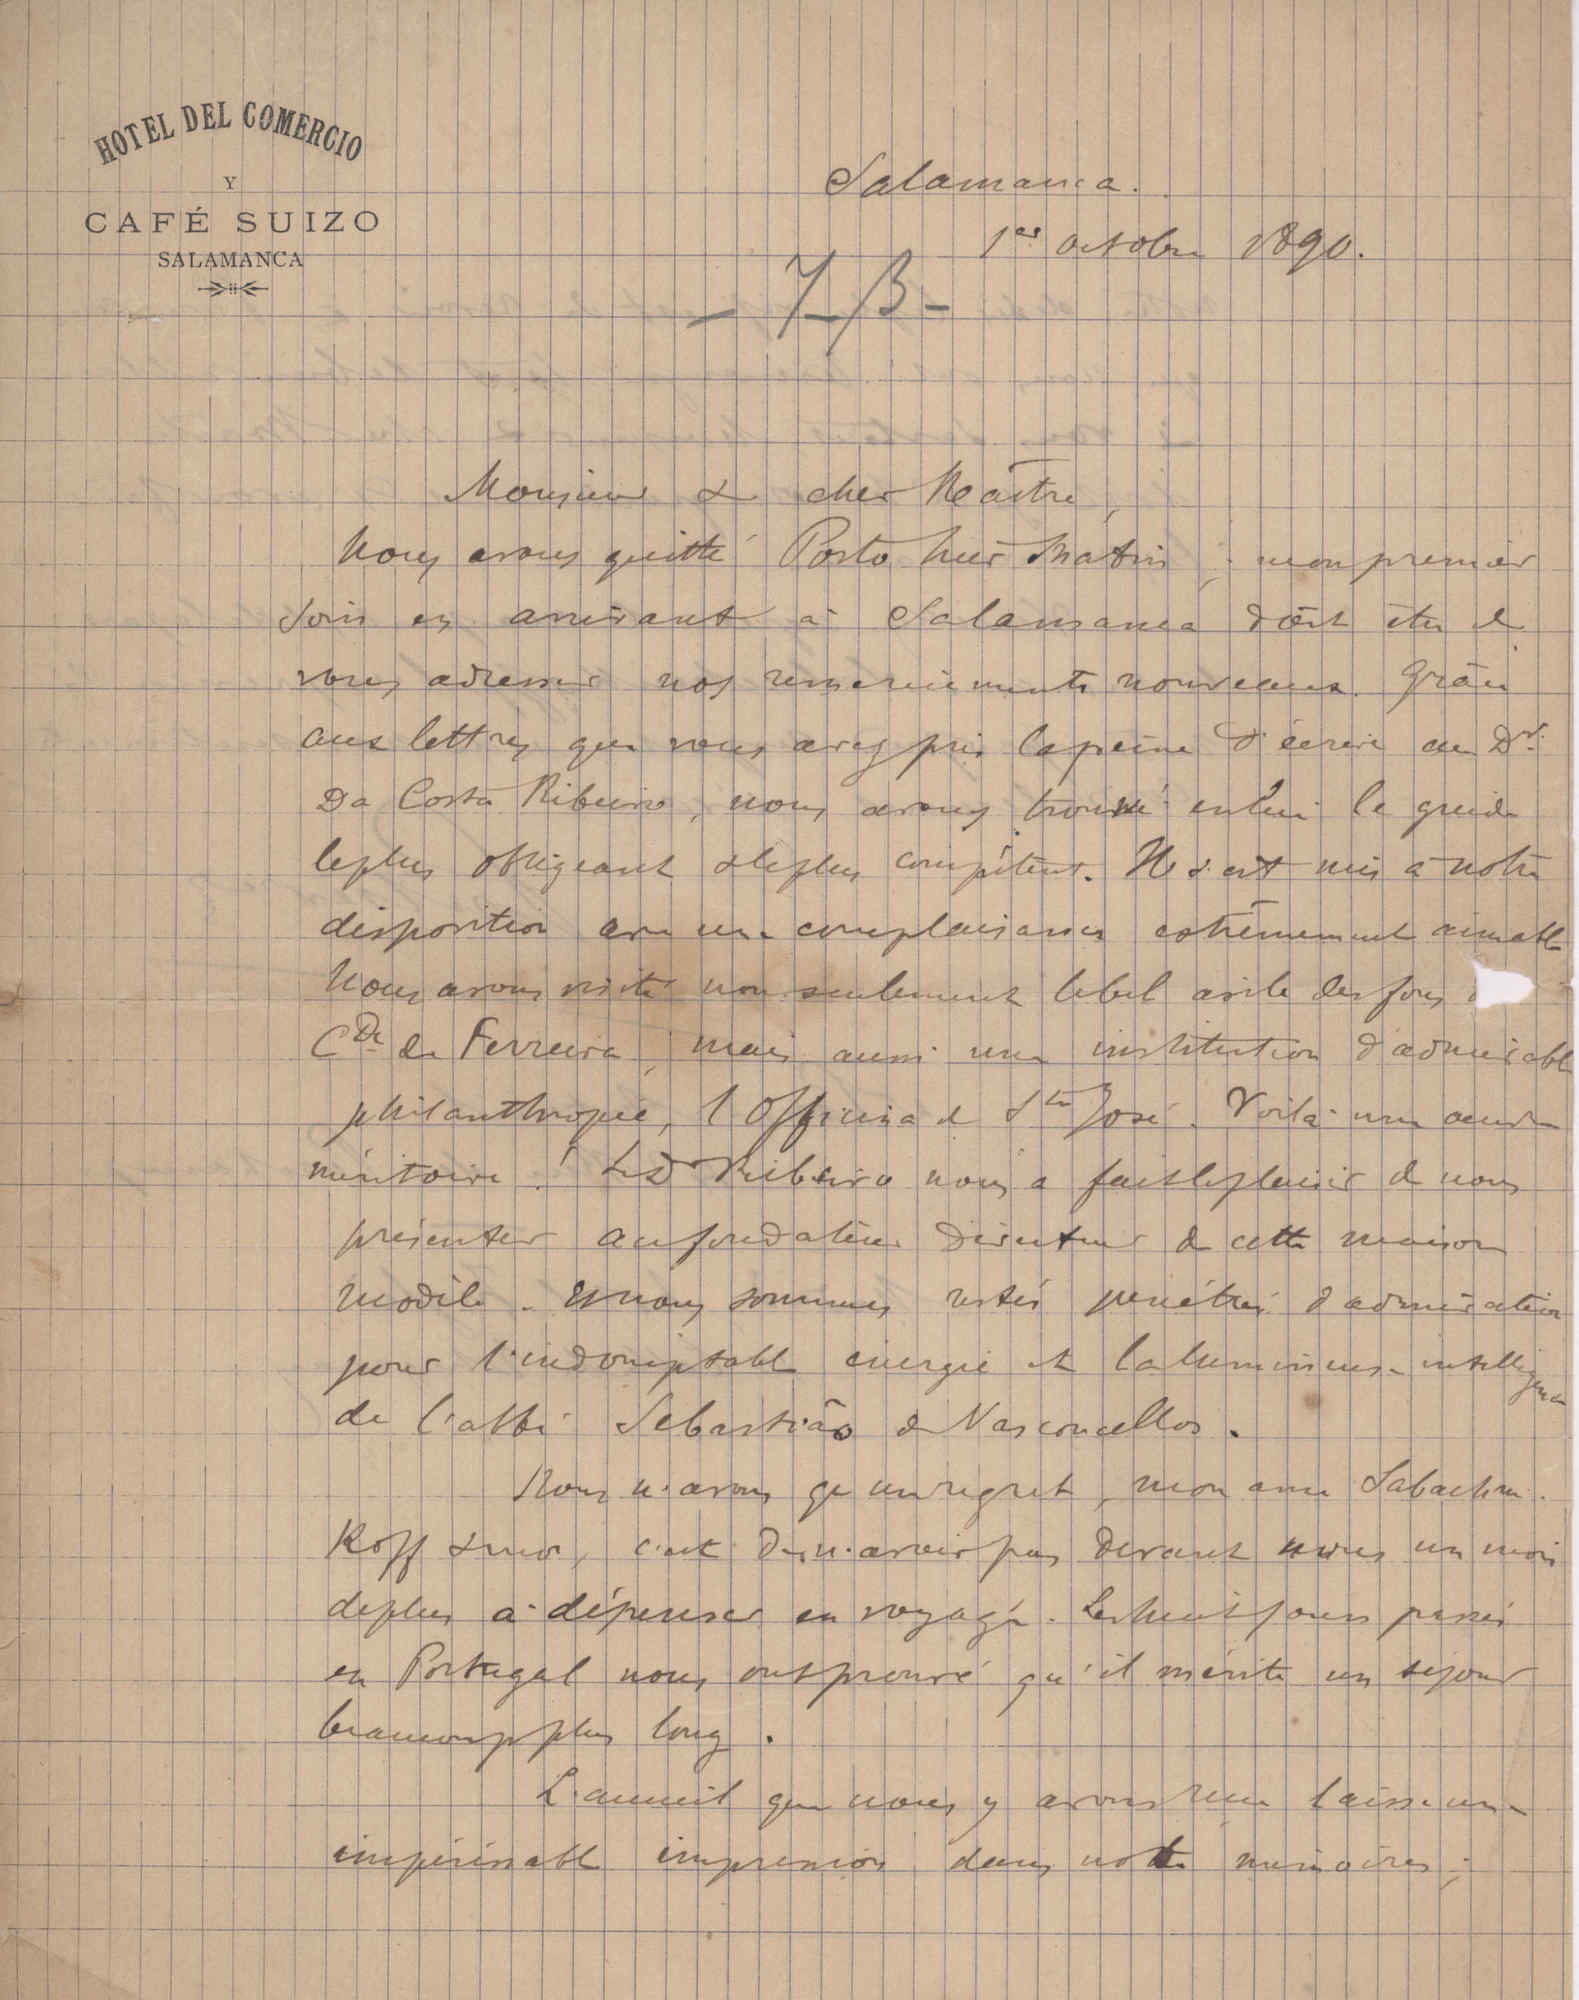 HOTEL DEL COMERCIO
Y
CAFÉ SUIZO
SALAMANCA
Salamanca.
1er octobre 1890.
Monsieur & cher Maître,
Nous avons quitté Porto hier matin ; mon premier
soin en arrivant à Salamanca doit être de
vous adresser nos remerciements nouveaux. Grâce
aux lettres que vous avez pris la peine d'écrire au Dr.
Da Costa Ribeiro, nous avons trouvé en lui le guide
le plus obligeant & le plus compétent. Il s'est mis à notre
disposition avec une complaisance extrêmement aimable
Nous avons visité non seulement le bel asile des fous
Cde de Ferreira, mais aussi une institution d'admirable
philanthropie, l'Officina de Sto José. Voilà une œuvre
méritoire ! Le Dr Ribeiro nous a fait le plaisir de nous
présenter au fondateur directeur de cette maison
modèle. Et nous sommes restés pénétrés d'admiration
pour l'indomptable énergie et la lumineuse intelligence
de l'abbé Sebastião de Vasconcellos.
Nous n'avons qu'un regret, mon ami Sabachni-
Koff & moi, c'est de n'avoir pas devant nous un mois
de plus à dépenser en voyage. Les huit jours passés
en Portugal nous ont prouvé qu'il mérite un séjour
beaucoup plus long.
L'accueil que nous y avons reçu laisse une
impérissable impression dans notre mémoires ;